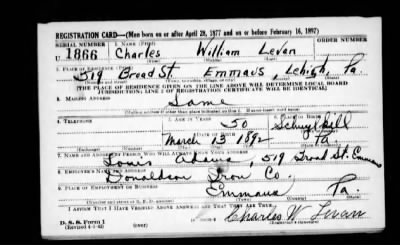 REGISTRATION CARD—(Men born on or after April 28, 1877 and on or before February 16, 1897)
SERIAL NUMBER 1. NAME (Print) ORDER NUMBER
1866 Charles William Levan
2. PLACE OF RESIDENCE (Print)
519 Broad St. Emmaus, Lehigh, Pa.
[THE PLACE OF RESIDENCE GIVEN ON THE LINE ABOVE WILL DETERMINE LOCAL BOARD
JURISDICTION; LINE 2 OF REGISTRATION CERTIFICATE WILL BE IDENTICAL]
3. MAILING ADDRESS
Same
[Mailing address if other than place indicated on line 2. If same insert word same]
4. TELEPHONE 5. AGE IN YEARS 6. PLACE OF BIRTH
50 Schuylkill
DATE OF BIRTH
March 13 1892 Pa
7. NAME AND ADDRESS OF PERSON WHO WILL ALWAYS KNOW YOUR ADDRESS
Adams, 519 Broad St. Emmaus
8. EMPLOYER'S NAME AND ADDRESS
Donaldson Iron Co.
9. PLACE OF EMPLOYMENT OR BUSINESS
Emmaus Pa.
I AFFIRM THAT I HAVE VERIFIED ABOVE ANSWERS AND THAT THEY ARE TRUE.
D. S. S. Form 1
(Revised 4-1-42) (over) Charles W Levan